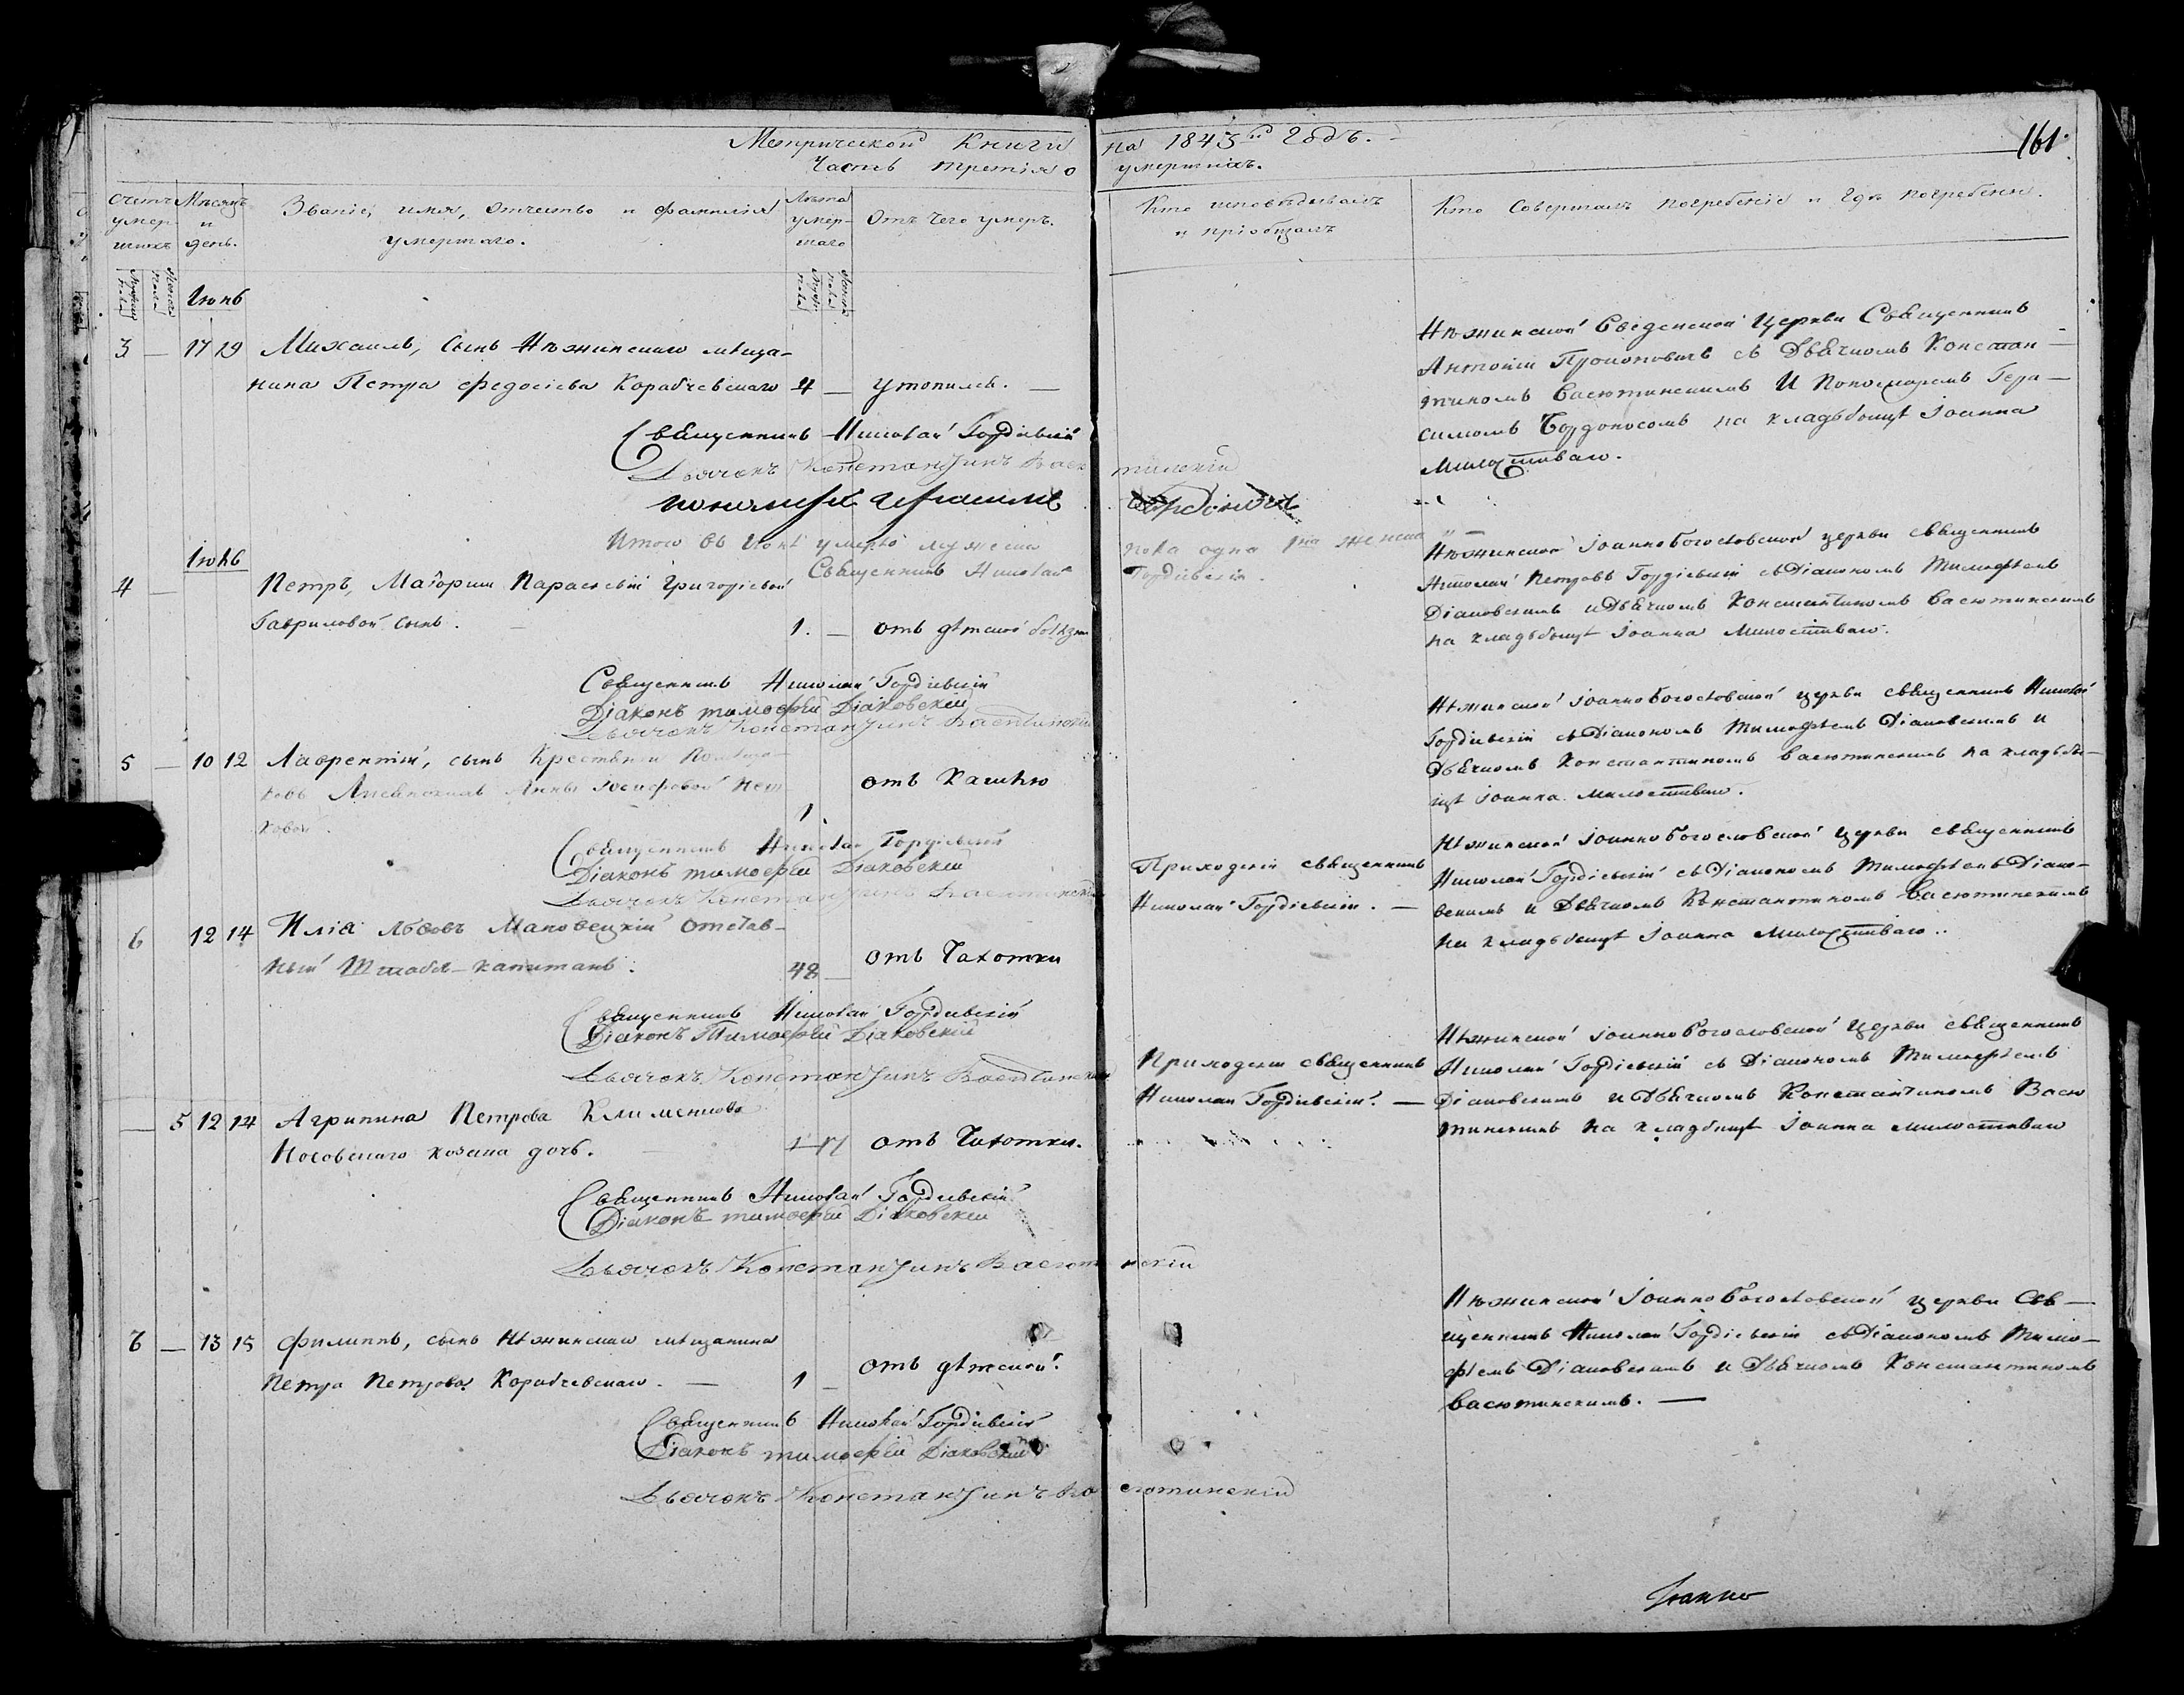 Метрической Книги на 1843й годъ.
161.
Часть третія о умершихъ.
Счетъ умершихъ
Мѣсяцъ и день.
Званіе, имя, отчество и фамилія
умершаго.
Лѣта умершаго
Отъ чего умеръ.
Кто исповѣдывалъ
и пріобщалъ
Кто Совершалъ погребеніе и гдѣ погребены.
Іюнь
3 — 17 19 Михаилъ, сынъ Нѣжинскаго мѣща-
нина Петра Федосіева Корабчевскаго 4 — утопился. —
Нѣжинской Введенской Церкви Священникъ
Антоній Прокоповичъ съ Дьячкомъ Констан-
тиномъ Васютинскимъ И Пономаремъ Гера-
симомъ на кладбищѣ Іоанна
Милостиваго.
Священникъ Николай Гордіевскій
Дьячокъ Константинъ Васютинскій
пономарь Герасимъ
Итого въ Іюнѣ умерло мужеска пола одна
Священникъ Николай Гордіевскій.
Іюль
4 — Петръ, Маіорши Параскевіи Григоріевой
Гавриловой сынъ. 1. — отъ дѣтской болѣзни
Нѣжинской Іоанно Богословской церкви священникъ
Николай Петровъ Гордіевскій съ Діакономъ Тимофѣемъ
Діаковскимъ и Дьячкомъ Константиномъ Васютинскимъ
на кладбищѣ Іоанна Милостиваго.
Священникъ Николай Гордіевскій
Діаконъ Тимофей Діаковскій
Дьячокъ Константинъ Васютинскій
5 — 10 12 Лаврентій, сынъ Крестьянки
Анны Іосифовой
ковой. 1. отъ Кашлю
Нѣжинской Іоанно Богословской церкви священникъ Николай
Гордіевскій съ Діакономъ Тимофѣемъ Діаковскимъ и
Дьячкомъ Константиномъ Васютинскимъ на кладби-
щѣ Іоанна Милостиваго.
Священникъ Николай Гордіевскій
Діаконъ Тимофей Діаковскій
Дьячокъ Константинъ Васютинскій
6 12 14 Илія Львовъ Маковецкій отстав-
ный Штабсъ-капитанъ. 48 — отъ Чахотки
Приходскій священникъ
Николай Гордіевскій. —
Нѣжинской Іоанно Богословской церкви священникъ
Николай Гордіевскій съ Діакономъ Тимофѣемъ Діако-
вскимъ и Дьячкомъ Константиномъ Васютинскимъ
на кладбищѣ Іоанна Милостиваго.
Священникъ Николай Гордіевскій
Діаконъ Тимофей Діаковскій
Дьячокъ Константинъ Васютинскій
— 5 12 14 Агрипина Петрова Клименкова
Носовскаго козака дочь. 17 отъ Чахотки.
Приходскій священникъ
Николай Гордіевскій. —
Нѣжинской Іоанно Богословской Церкви священникъ
Николай Гордіевскій съ Діакономъ Тимофѣемъ
Діаковскимъ и Дьячкомъ Константиномъ Васю
тинскимъ на кладбищѣ Іоанна Милостиваго
Священникъ Николай Гордіевскій
Діаконъ Тимофей Діаковскій
Дьячокъ Константинъ Васютинскій
7 — 13 15 Филиппъ, сынъ Нѣжинскаго мѣщанина
Петра Петрова Корабчевскаго. — 1 — отъ дѣтской.
Нѣжинской Іоанно Богословской церкви Свя-
щенникъ Николай Гордіевскій съ Діакономъ Тимо-
фѣемъ Діаковскимъ и Дьячкомъ Константиномъ
Васютинскимъ. —
Священникъ Николай Гордіевскій
Діаконъ Тимофей Діаковскій
Дьячокъ Константинъ Васютинскій
Іоанно